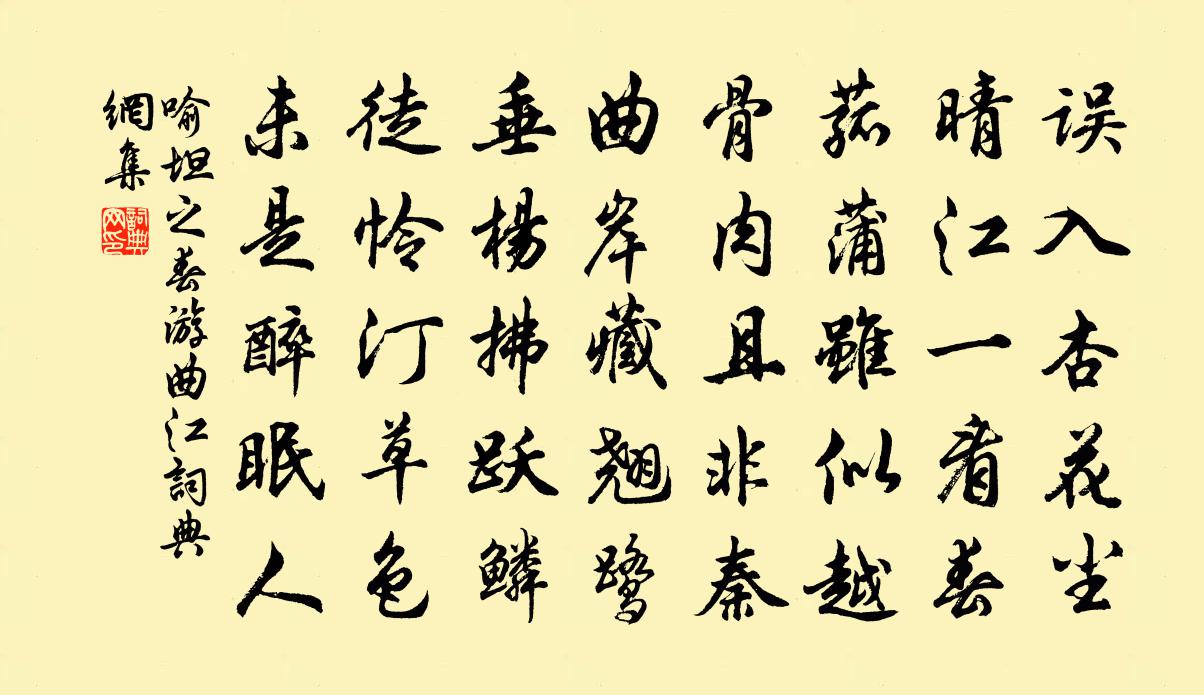 误入杏花尘
晴江一看春
菰蒲雖似越
骨肉且非秦
曲岸藏翹鹭
垂楊拂跃鱗
徒怜汀草色
未是醉眠人
喻坦之春游曲江詞典
網集
詞典
网印